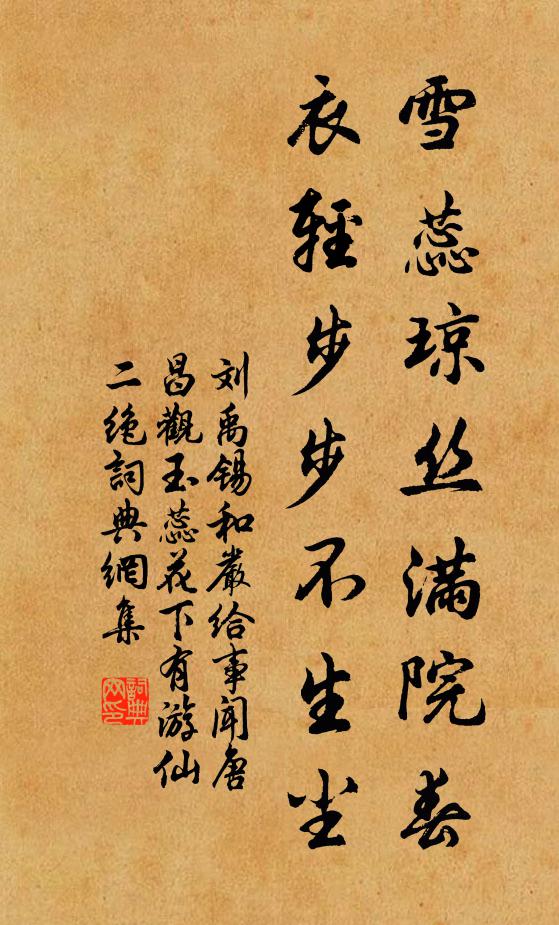 雪蕊琼丝满院春
衣輕步步不生尘
刘禹锡和嚴给事闻唐
昌觀玉蕊花下有游仙
二绝詞典網集
詞典网印